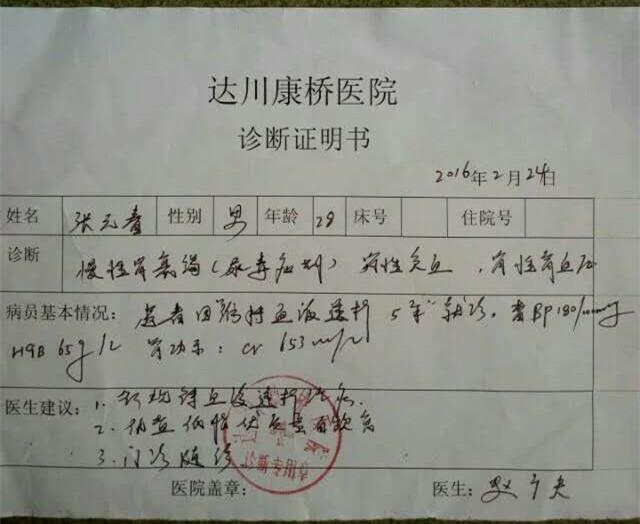 达川康桥医院
诊断证明书
2016年2月24日
姓名 张元 性别 男 年龄 29 床号 住院号
诊断 慢性肾衰竭（尿毒症期） 肾性贫血，肾性高血压
病员基本情况： 患者因维持血液透析5年就诊，查BP180/100mmHg
HGB 65g/L 肾功示：cr 653
医生建议：1.积极血液透析
2.低盐低脂优质蛋白饮食
3.门诊随诊
诊断专用章
医院盖章： 医生：